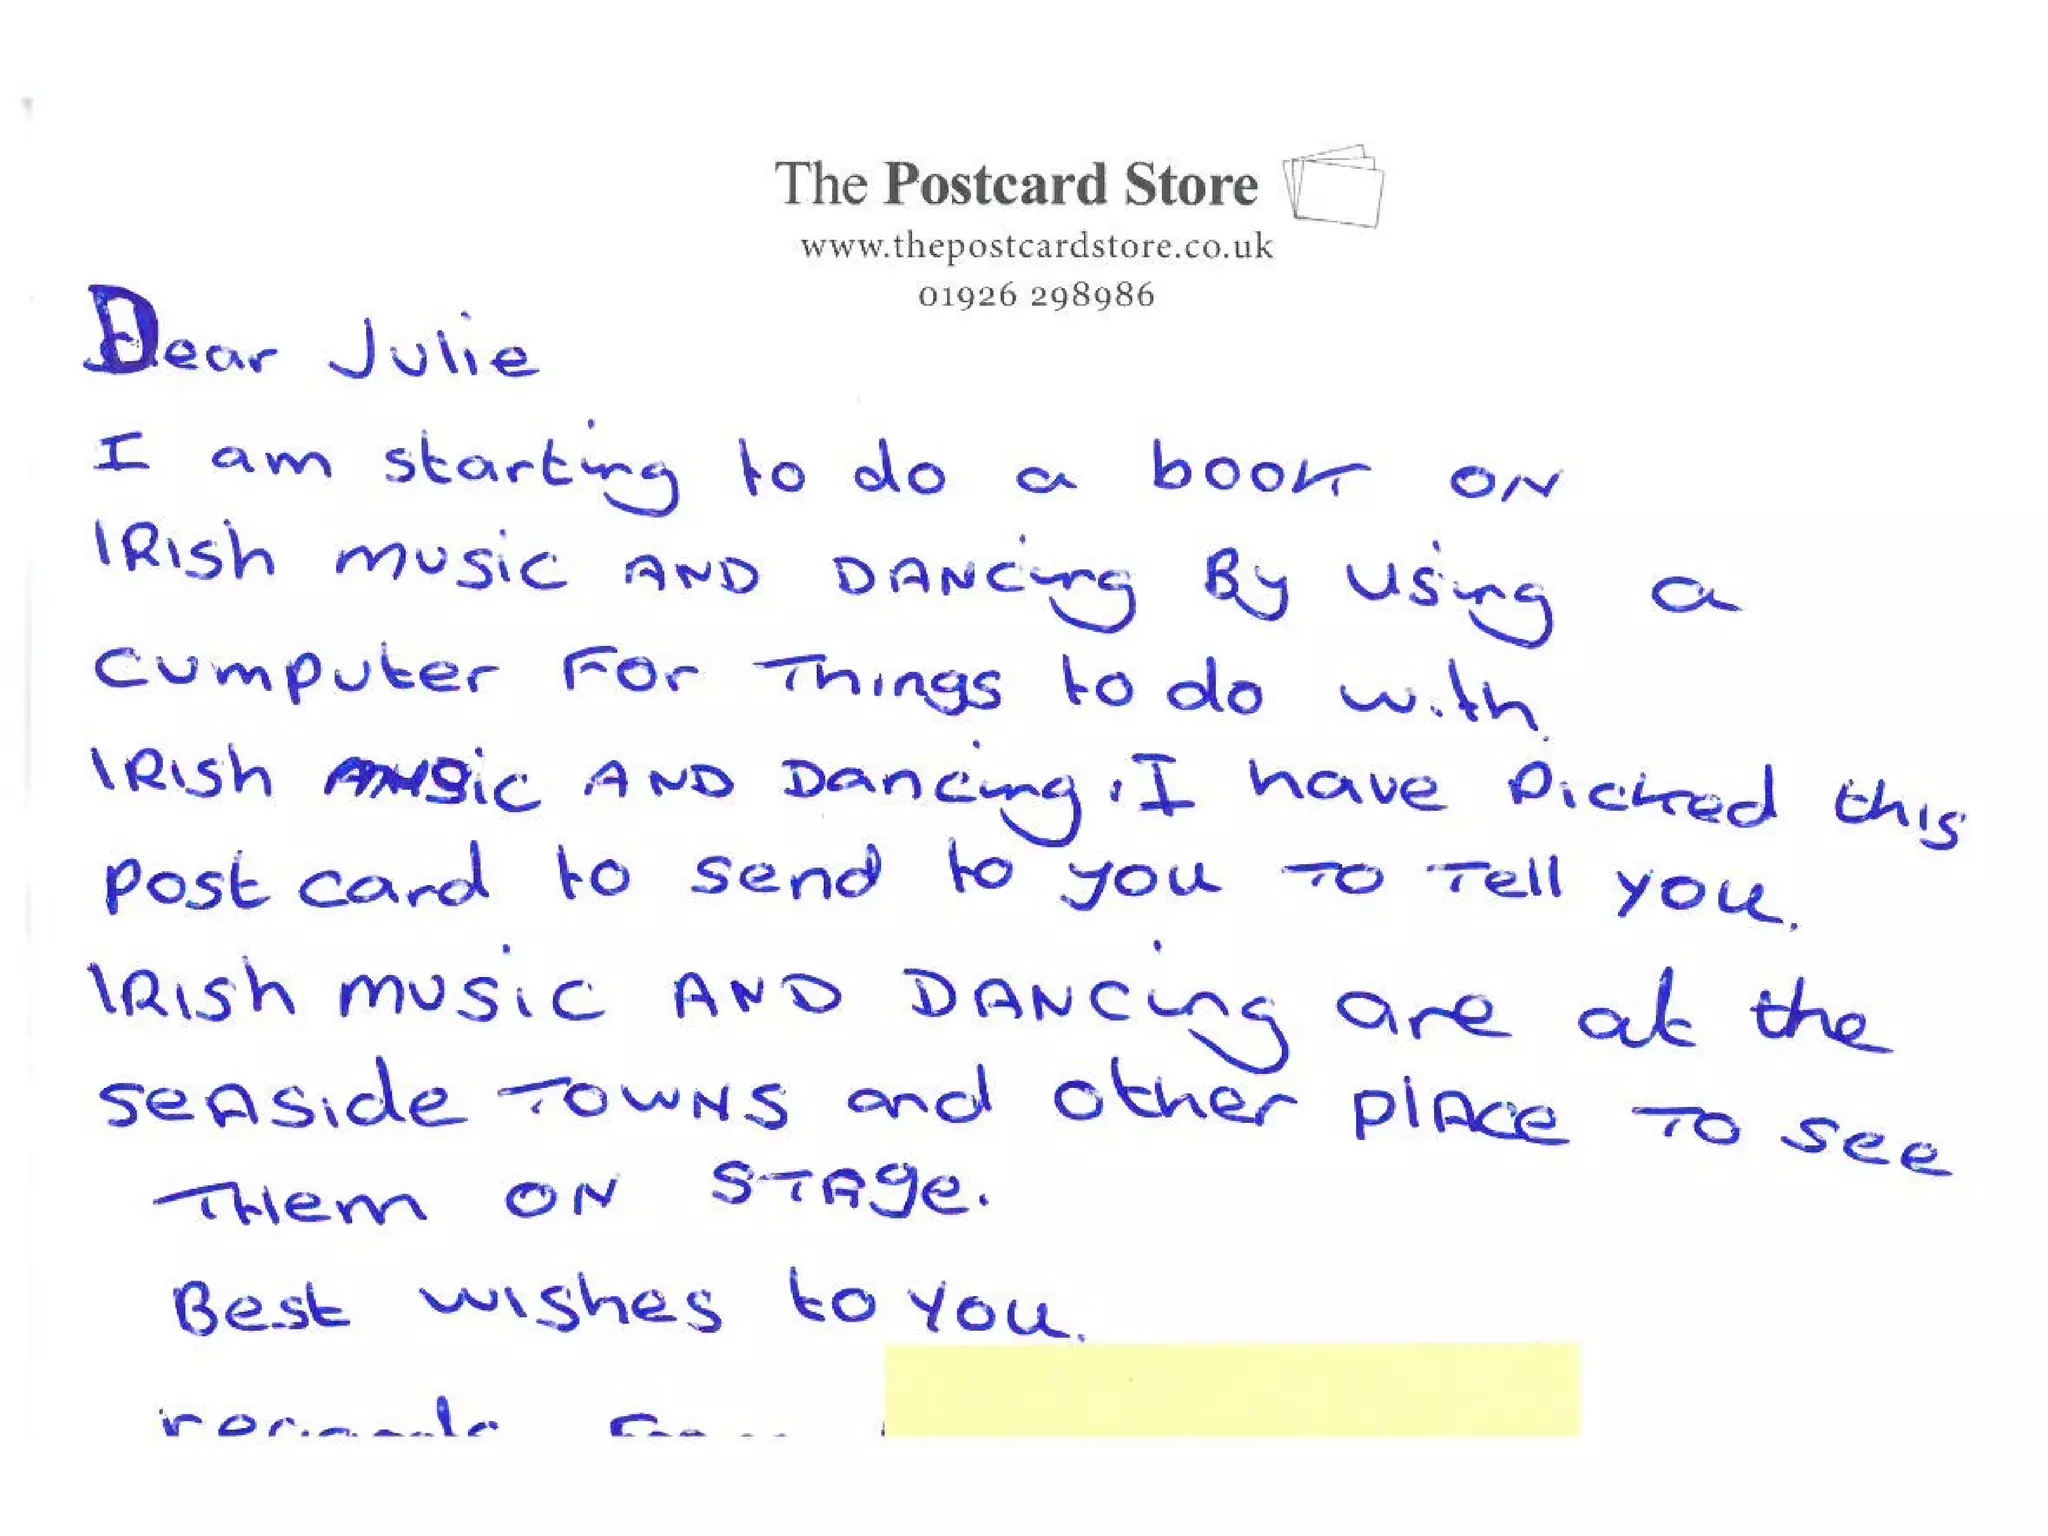 The Postcard Store
www.thepostcardstore.co.uk
01926 298986
Dear Julie
I am starting to do a book on
IRISh music AND DANCing By using a
cumputer For Things to do with
IRISh music AND Dancing. I have Picked this
post card to send to you To Tell you.
IRISh music AND DANCing are at the
seAside TOWNS and other plAce To see
THem ON STAge.
Best wishes to you.
regards From